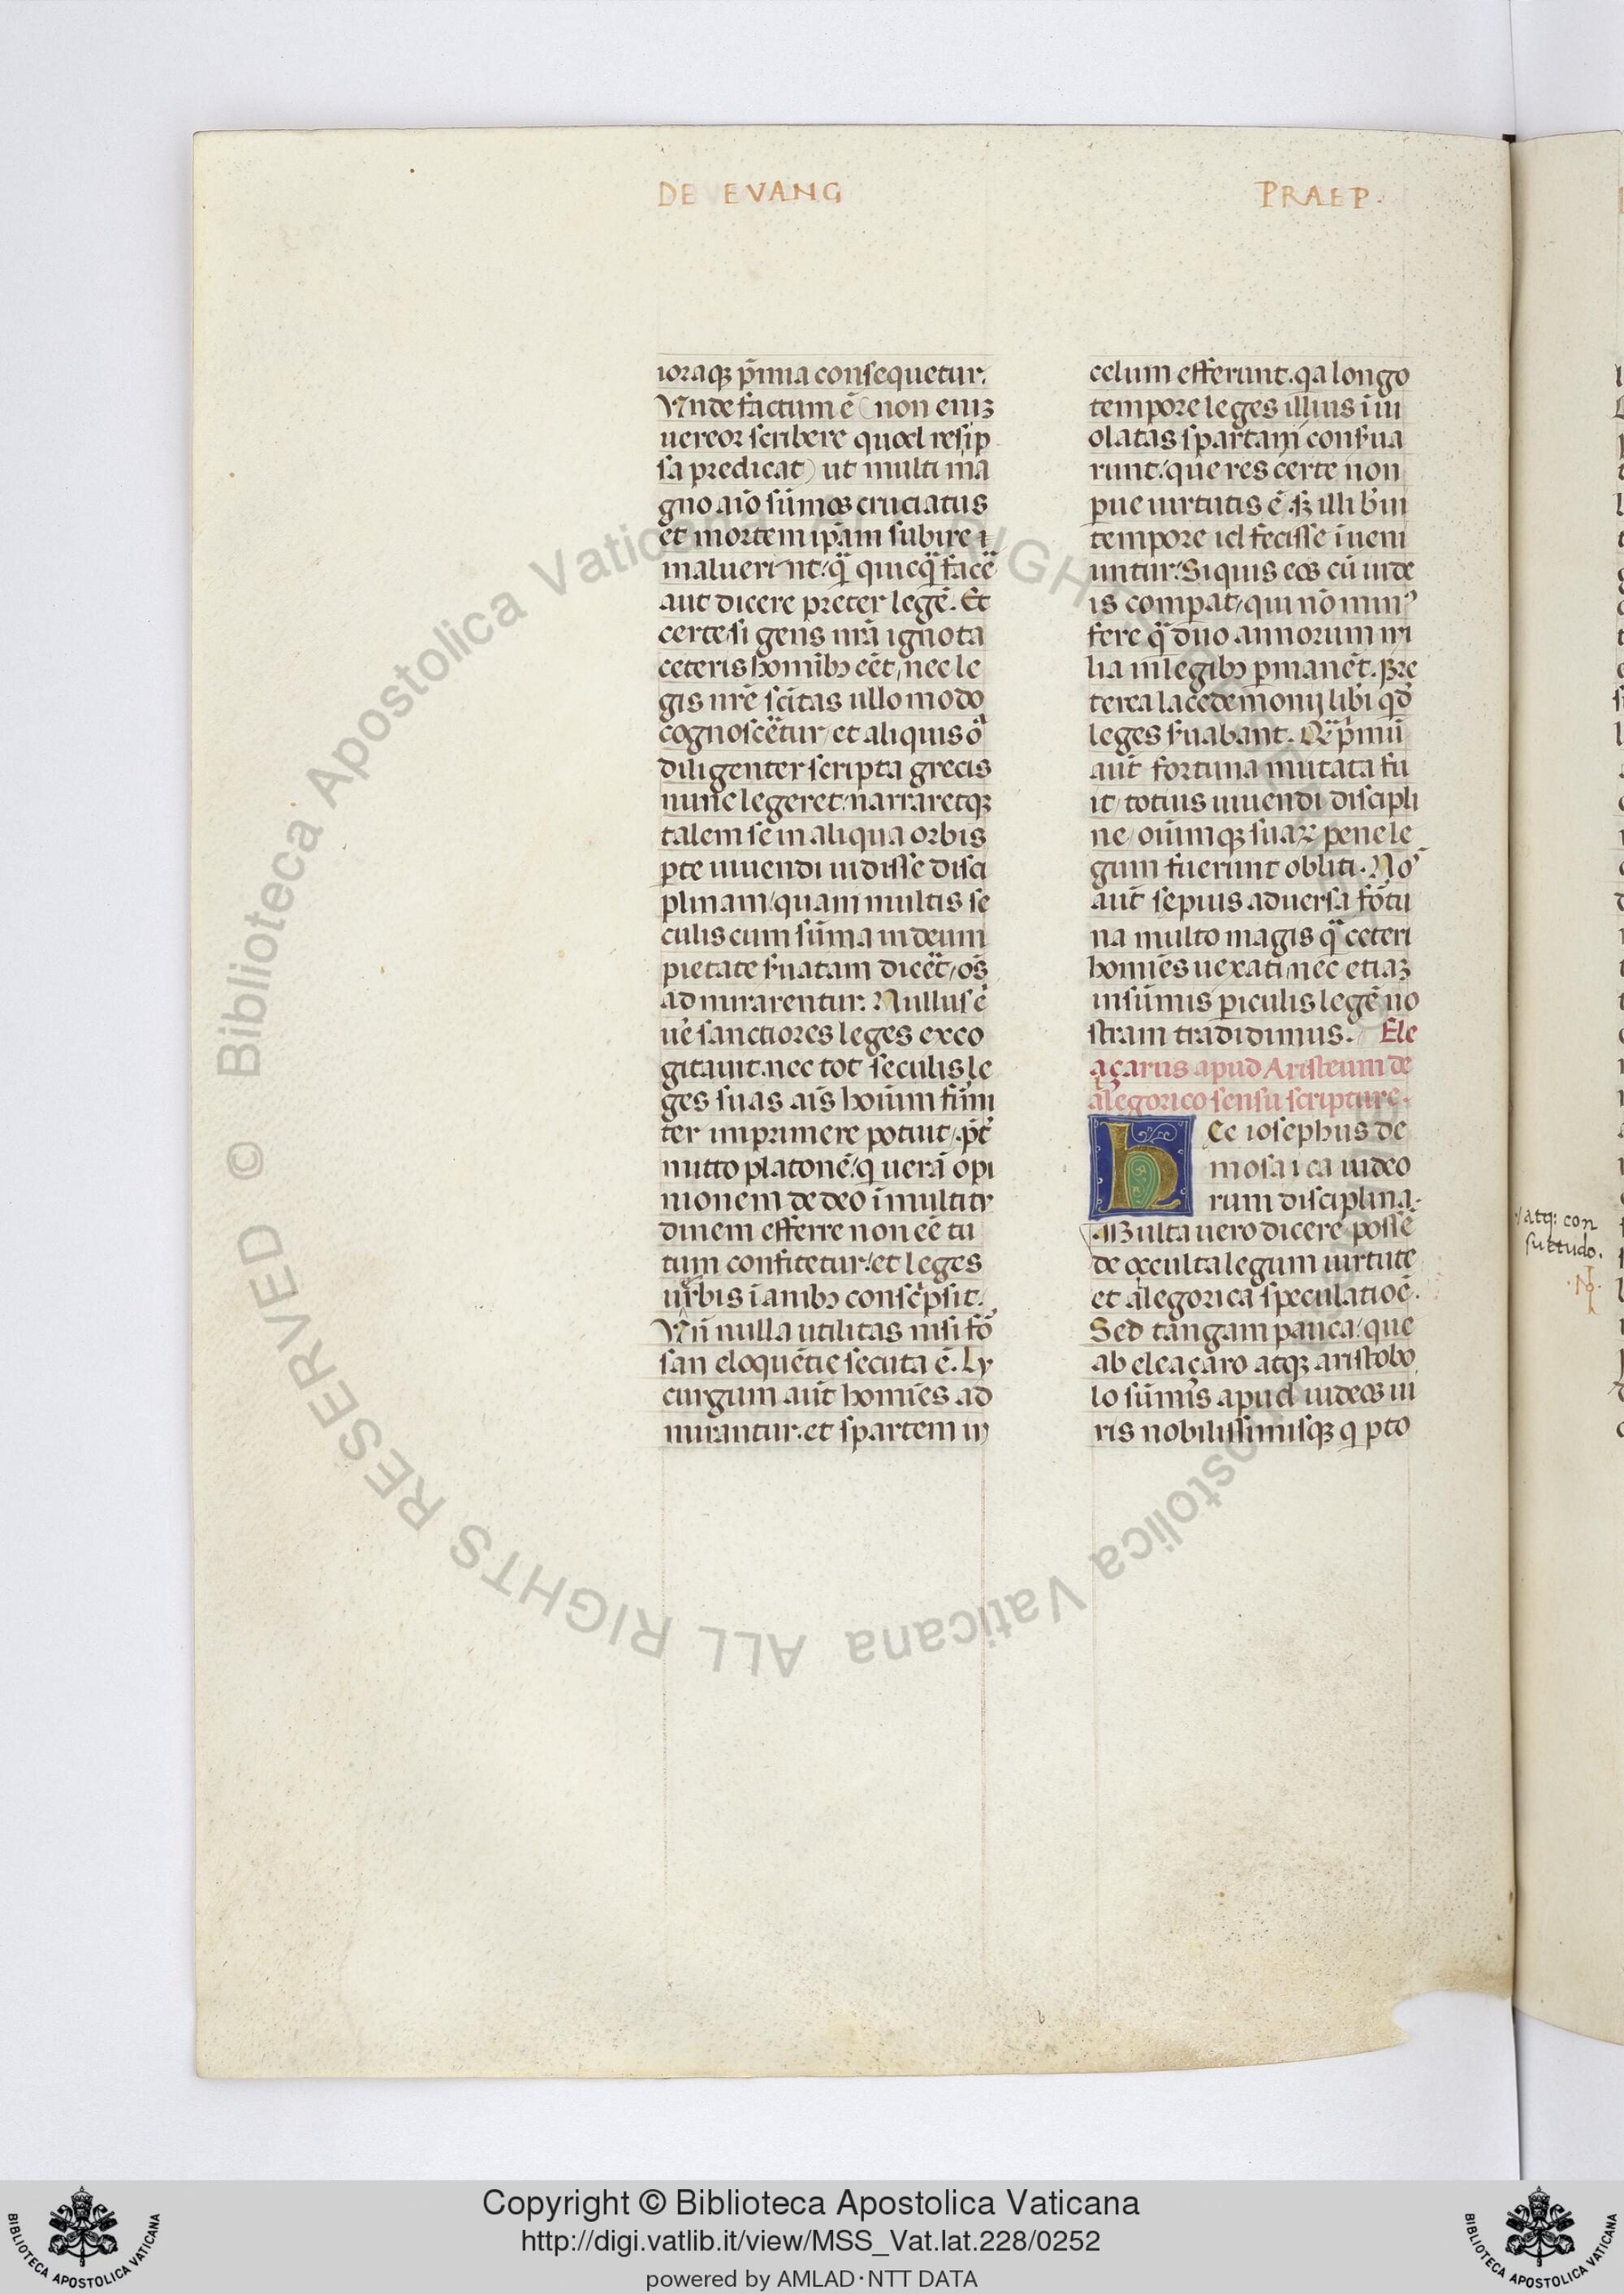 DE EVANG PRAEP.
ioraqꝫ p̄mia consequetur.
Vnde factum ē (non eniꝫ
uereor scribere quod res ip
sa predicat) ut multi ma
gno aīo sūmos cruciatus
et mortem ip̄am subire
maluerint: qͣ quicqͣ facē
aut dicere preter legē. Et
certe si gens nr̄a ignota
ceteris homibꝫ eēt, nec le
gis nr̄e scītas ullo modo
cognoscētur et aliquis
diligenter scripta grecis
nunc legeret: narraretqꝫ
talem se in aliqua orbis
ꝑte uiuendi uidisse disci
plinam, quam multis se
culis cum sūma in deum
pietate ẜuatam dicēt, os̄
admirarentur. Nullus ē
ūe sanctiores leges exco
gitauit. nec tot seculis le
ges suas aīs hoīum firmi
ter imprimere potuit. p̄t
mitto platonē, q uerā opi
nionem de deo ī multitu
dinem efferre non eē tu
tum confitetur: et leges
urbis īanibꝫ consc̄psit.
Vn̄ nulla utilitas nisi fo
san eloquētie secuta ē. Ly
curgum aūt homīes ad
mirantur. et spartem in
celum efferunt. qa longo
tempore leges illius ī ui
olatas spartani conẜua
runt: que res certe non
ꝑue uirtutis ē. sꝫ illi br̄ui
tempore id fecisse īueni
untur. Siquis eos cū iude
is comꝑat, qui nō minꝰ
fere qͣ duo annorum mi
lia in legibꝫ ꝑmanēt. Pre
terea lacedemonij libi qd̄
leges ẜuabant. Cͣ pͥmū
aūt fortuna mutata fu
it, totius uiuendi discipli
ne, oīumqꝫ suaꝝ pene le
gum fuerunt obliti. Nos
aūt sepius aduersa fōtu
na multo magis qͣ ceteri
homīes uexati, nec etiaꝫ
in sūmis ꝑiculis legē no
stram tradidimus. Ele
açarus apud Aristeum de
alegorico sensu scripture.
hEc iosephus de
mosaica iudeo
rum disciplina.
Multa uero dicere possē
de occulta legum uirtute
et alegorica speculatioē.
Sed tangam pauca: que
ab eleaçaro atqꝫ aristobo
lo sūmis apud iudeos ui
ris nobilissimisqꝫ q pto
atq; con
suetudo.
Copyright © Biblioteca Apostolica Vaticana
http://digi.vatlib.it/view/MSS_Vat.lat.228/0252
powered by AMLAD·NTT DATA
BIBLIOTECA APOSTOLICA VATICANA
BIBLIOTECA APOSTOLICA VATICANA
© Biblioteca Apostolica Vaticana ALL RIGHTS RESERVED